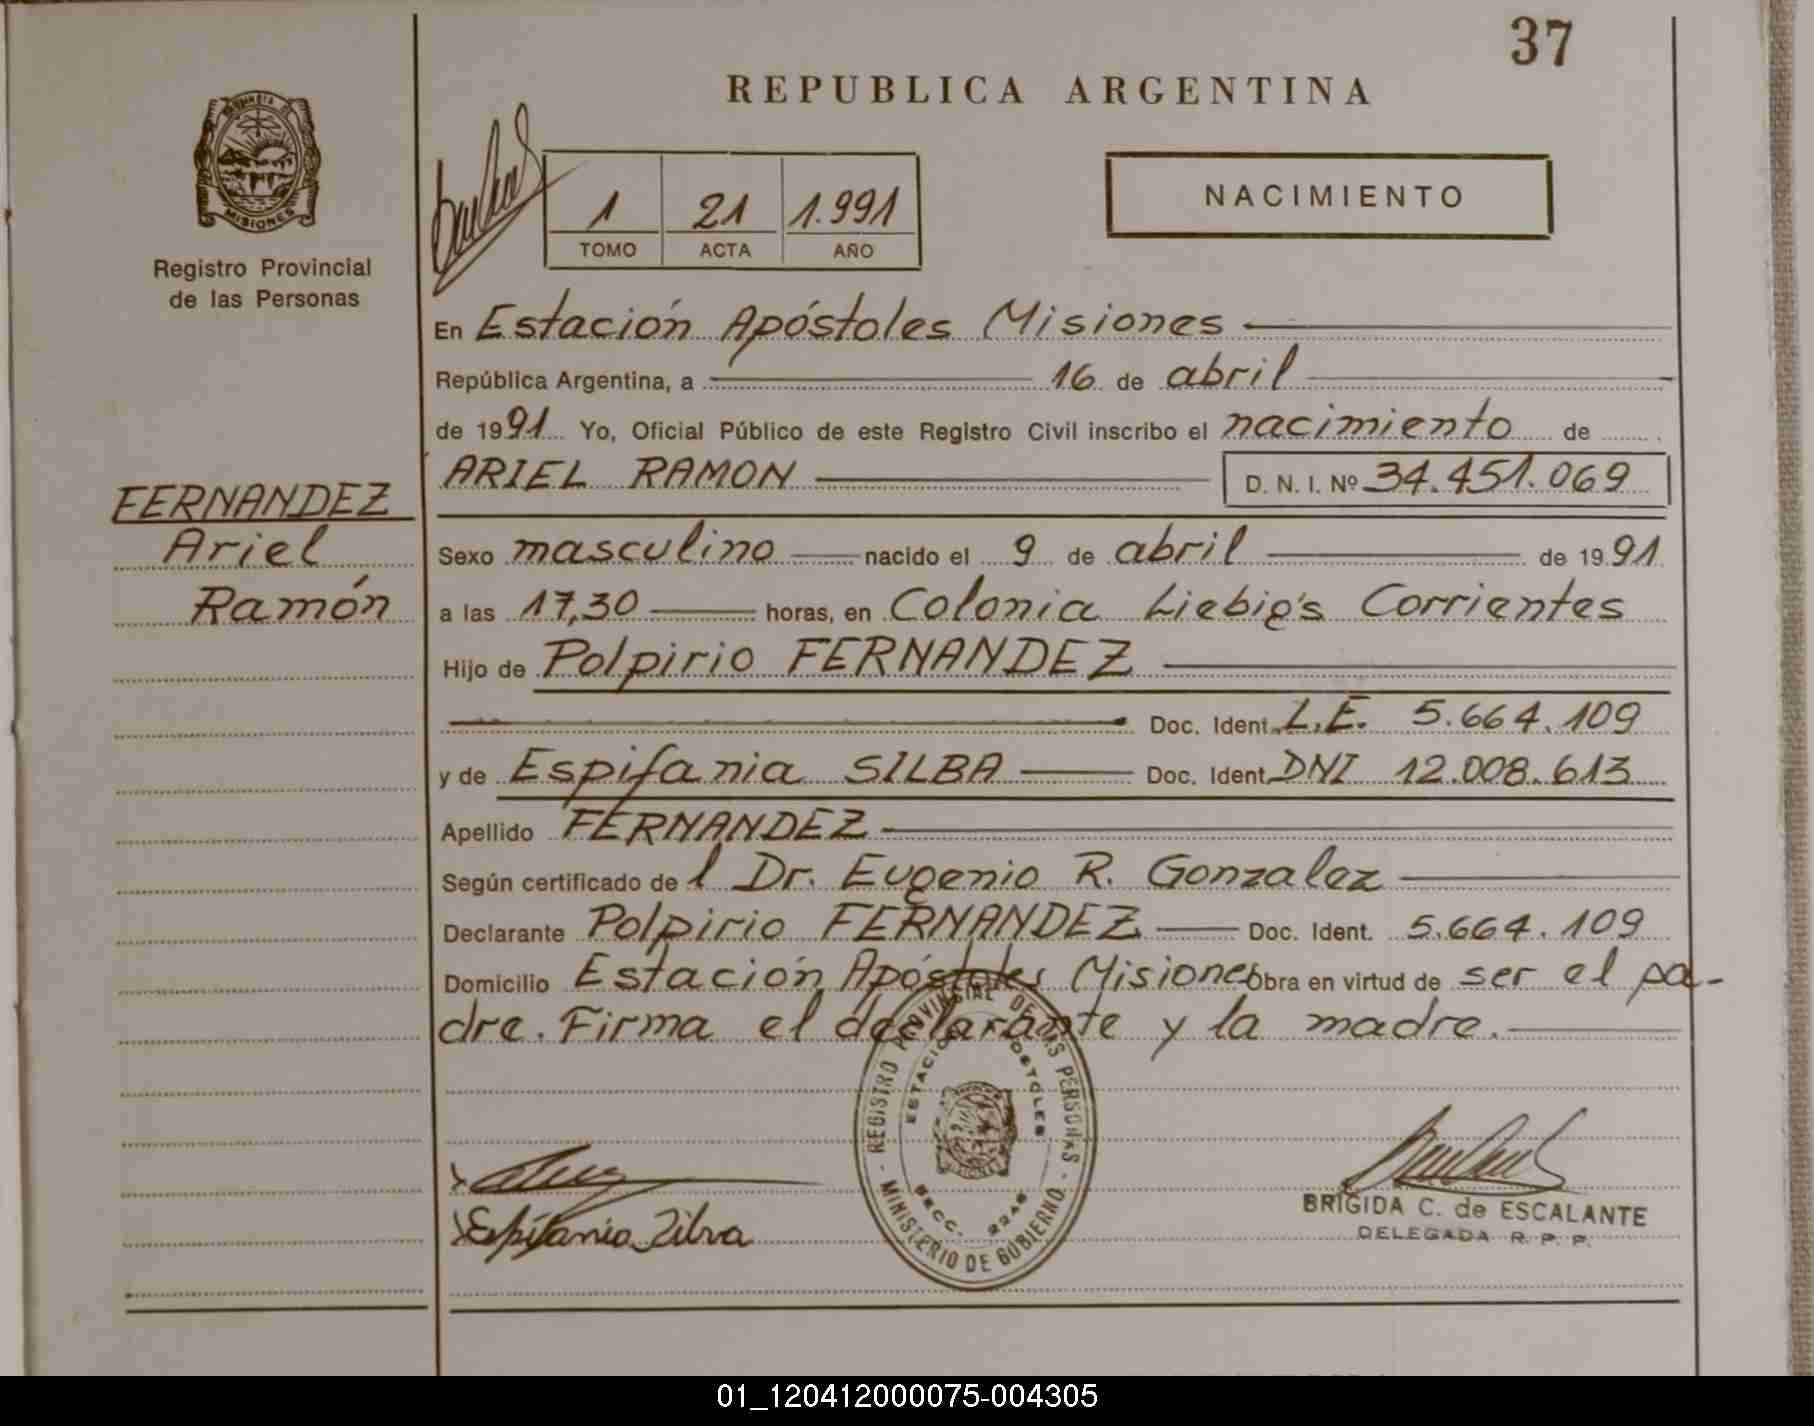 37
REPUBLICA ARGENTINA
MISIONES
Registro Provincial
de las Personas
1 21 1.991
TOMO ACTA AÑO
NACIMIENTO
En Estación Apóstoles Misiones
República Argentina, a 16 de abril
de 1991 Yo, Oficial Público de este Registro Civil inscribo el nacimiento de
ARIEL RAMON D. N. I. Nº 34.451.069
FERNANDEZ
Ariel
Ramón
Sexo masculino nacido el 9 de abril de 1991
a las 17,30 horas, en Colonia Liebig's Corrientes
Hijo de Polpirio FERNANDEZ
Doc. Ident. L.E. 5.664.109
y de Espifania SILBA Doc. Ident. DNI 12.008.613
Apellido FERNANDEZ
Según certificado de l Dr. Eugenio R. Gonzalez
Declarante Polpirio FERNANDEZ Doc. Ident. 5.664.109
Domicilio Estación Apóstoles Misiones Obra en virtud de ser el pa-
dre. Firma el declarante y la madre.
REGISTRO PROVINCIAL DE LAS PERSONAS - MINISTERIO DE GOBIERNO -
ESTACION APOSTOLES
SECC. 2246
MISIONES
Espifania Zilva
BRIGIDA C. de ESCALANTE
DELEGADA R. P. P.
01_120412000075-004305